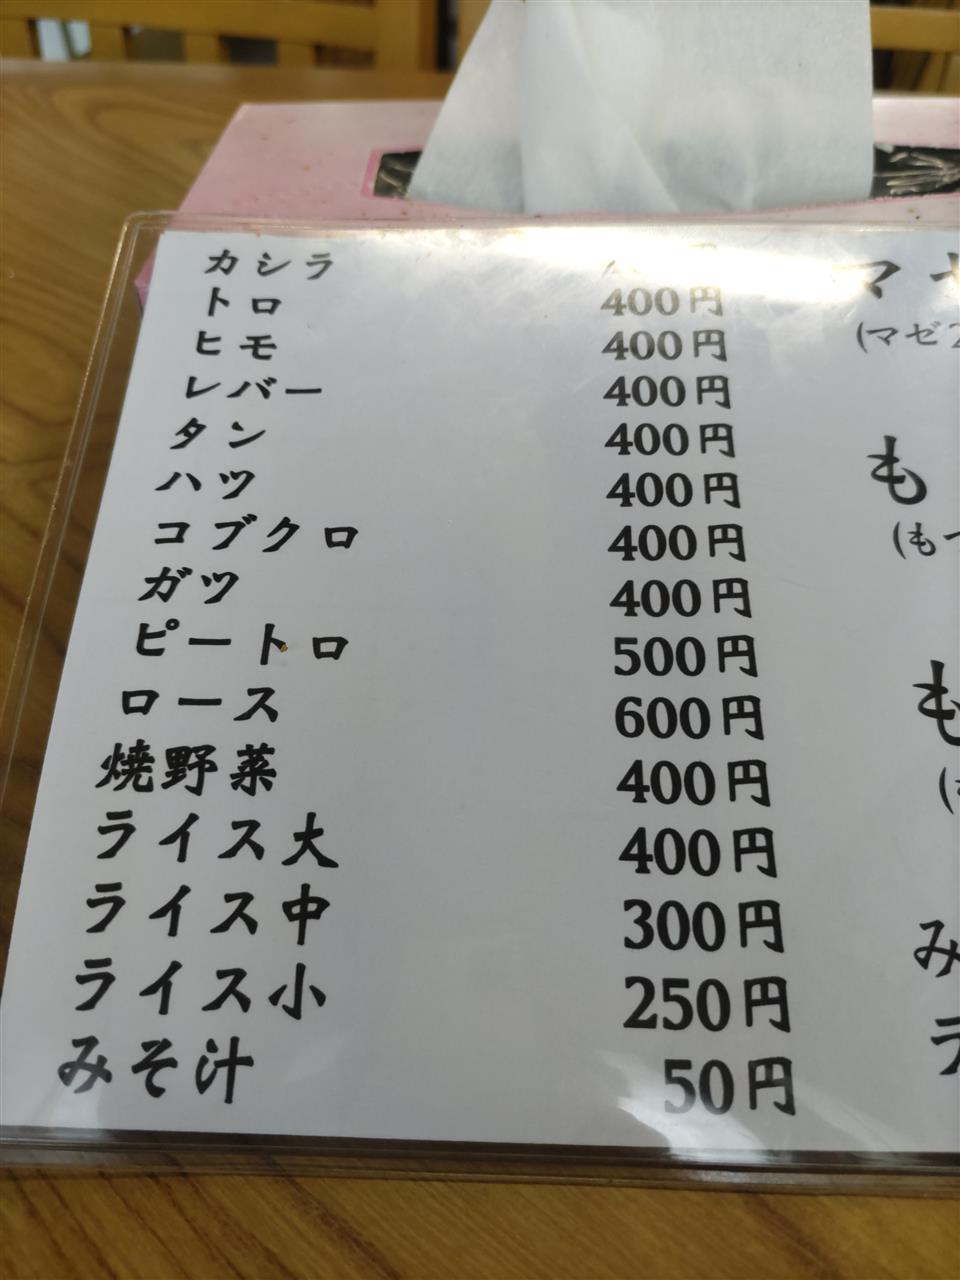 カシラ マ
トロ 400円
ヒモ 400円 (マゼ
レバー 400円
タン 400円
ハツ 400円 も
コブクロ 400円 (も
ガツ 400円
ピートロ 500円
ロース 600円 も
焼野菜 400円
ライス大 400円
ライス中 300円 み
ライス小 250円 ラ
みそ汁 50円